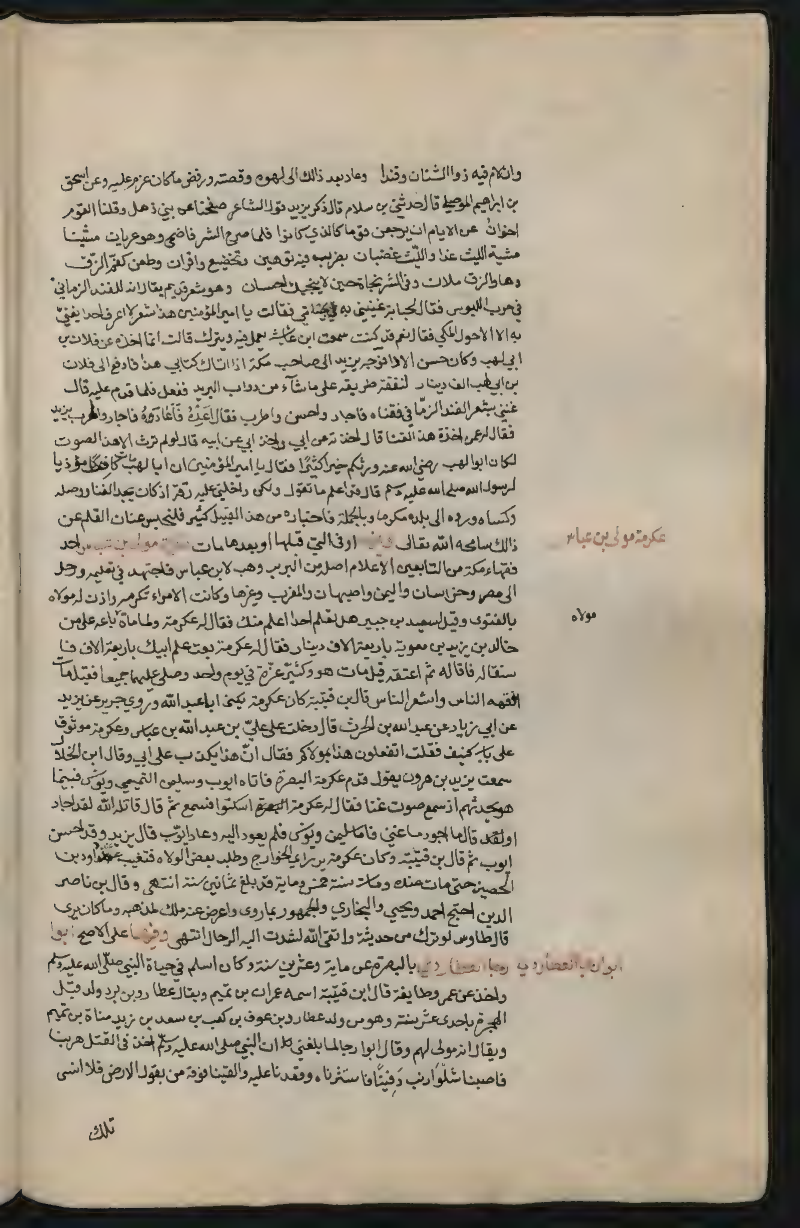 وان لام فيه ذوالشنان وفندا وعاد بعد ذلك الى لهوه وقصته ورفض ما كان عزم عليه وعن اسحق
بن ابراهيم الموصلي قال حدثني بن سلام قال ذكر يزيد قول الشاعر صفحنا عن بني ذهل وقلنا القوم
اخوان عسى الايام ان يرجعن قوما كالذي كانوا فلما صرح الشر فاضحى وهو عريان مشينا
مشية الليث غدا والليث غضبان بضرب فيه توهين وتخضيع واقران وطعن كفم الزق
وها والزق ملان وفي الشر نجاة حين لا ينجيك احسان وهو شعر قديم يقال انه للفند الزماني
في حرب البسوس فقال لحبابة غنيني به بحياتي فقالت يا امير المؤمنين هذا شعر لا اعرف احدا يغني
به الا الاحول المكي فقال نعم قد كنت سمعت ابن عائشة يعمل فيه ويترك قالت انما اخذه عن فلان بن
ابي لهب وكان حسن الاداء فوجه يزيد الى صاحب مكة اذا اتاك كتابي هذا فادفع الى فلان
بن ابي لهب الف دينار لنفقة طريقه على ما شآء من دواب البريد ففعل فلما قدم عليه قال
غنني بشعر الفند الزماني فغناه فاجاد واحسن واطرب فقال اعده فاعاده فاجاد واطرب يزيد
فقال له عمن اخذت هذا الغنا قال اخذته عن ابي واخذه ابي عن ابيه قال لو لم ترث الا هذا الصوت
لكان ابو لهب رضي الله عنه ورثكم خيرا كثيرا فقال يا امير المؤمنين ان ابا لهب كان كافرا مؤذيا
لرسول الله صلى الله عليه وسلم قال قد اعلم ما تقول ولكن داخلني عليه رقة اذ كان يجيد الغنا ووصله
وكساه ورده الى بلده مكرما وبالجملة فاخباره من هذا القبيل كثير فلنحبس عنان القلم عن
ذلك سامحه الله تعالى وفيها او في التي قبلها او بعدها مات عكرمة مولى بن عباس احد
عكرمة مولى بن عباس
فقهاء مكة من التابعين الاعلام اصله من البربر وهب لابن عباس فاجتهد في تعليمه ورحل
الى مصر وخراسان واليمن واصبهان والمغرب وغيرها وكانت الامراء تكرمه واذن له مولاه
مولاه
بالفتوى وقيل لسعيد بن جبير هل تعلم احدا اعلم منك فقال له عكرمة ولما مات باعه علي من
خالد بن يزيد بن معوية باربعة الاف دينار فقال له عكرمة بعت علم ابيك باربعة الاف فا
ستقاله فاقاله ثم اعتقه قيل مات هو وكثير عزة في يوم واحد وصلى عليهما جميعا فقيل مات
افقه الناس واشعر الناس قال بن قتيبة كان عكرمة يكنى ابا عبد الله وروى جرير عن يزيد
عن ابي زياد عن عبد الله بن الحرث قال دخلت على علي بن عبد الله بن عباس وعكرمة موثوق
على باب كنيف فقلت اتفعلون هذا بمولاكم فقال ان هذا يكذب على ابي وقال ابن الخلال
سمعت يزيد بن هرون يقول قدم عكرمة البصرة فاتاه ايوب وسليمن التيمي ويونس فبينما
هو يحدثهم اذ سمع صوت غنا فقال له عكرمة اسكتوا فسمع ثم قال قاتله الله لقد اجاد
او لقد قال ما اجود ما غنى فاما سليمن ويونس فلم يعودا اليه وعاد ايوب قال يزيد وقد احسن
ايوب ثم قال بن قتيبة وكان عكرمة يرى راي الخوارج وطلبه بعض الولاه فتغيب عند داود بن
الحصين حتى مات عنده ومات سنة خمس ومايه وقد بلغ ثمانين سنة انتهى وقال بن ناصر
الدين احتج احمد ويحيى والبخاري والجمهور بما روى واعرض عنه مالك لمذهبه وما كان يرى
قال طاوس لو ترك من حديثه واتقى الله لشدت اليه الرحال انتهى وفيها على الاصح ابوا
رجا العطاردي بالبصرة عن ماية وعشرين سنة وكان اسلم في حياة النبي صلى الله عليه وسلم
واخذ عن عمر وطايفة قال ابن قتيبة اسمه عمران بن تميم ويقال عطارد بن برد ولد قبل
الهجرة باحدى عشر سنة وهو من ولد عطارد بن عوف بن كعب بن سعد بن زيد مناة بن تميم
ويقال انه مولى لهم وقال ابوا رجا لما بلغني ان النبي صلى الله عليه وسلم اخذ في القتل هربنا
فاصبنا شلوا رنب دفينا فاستثرناه وقعدنا عليه والقينا فوقه من بقول الارض فلا انسى
تلك